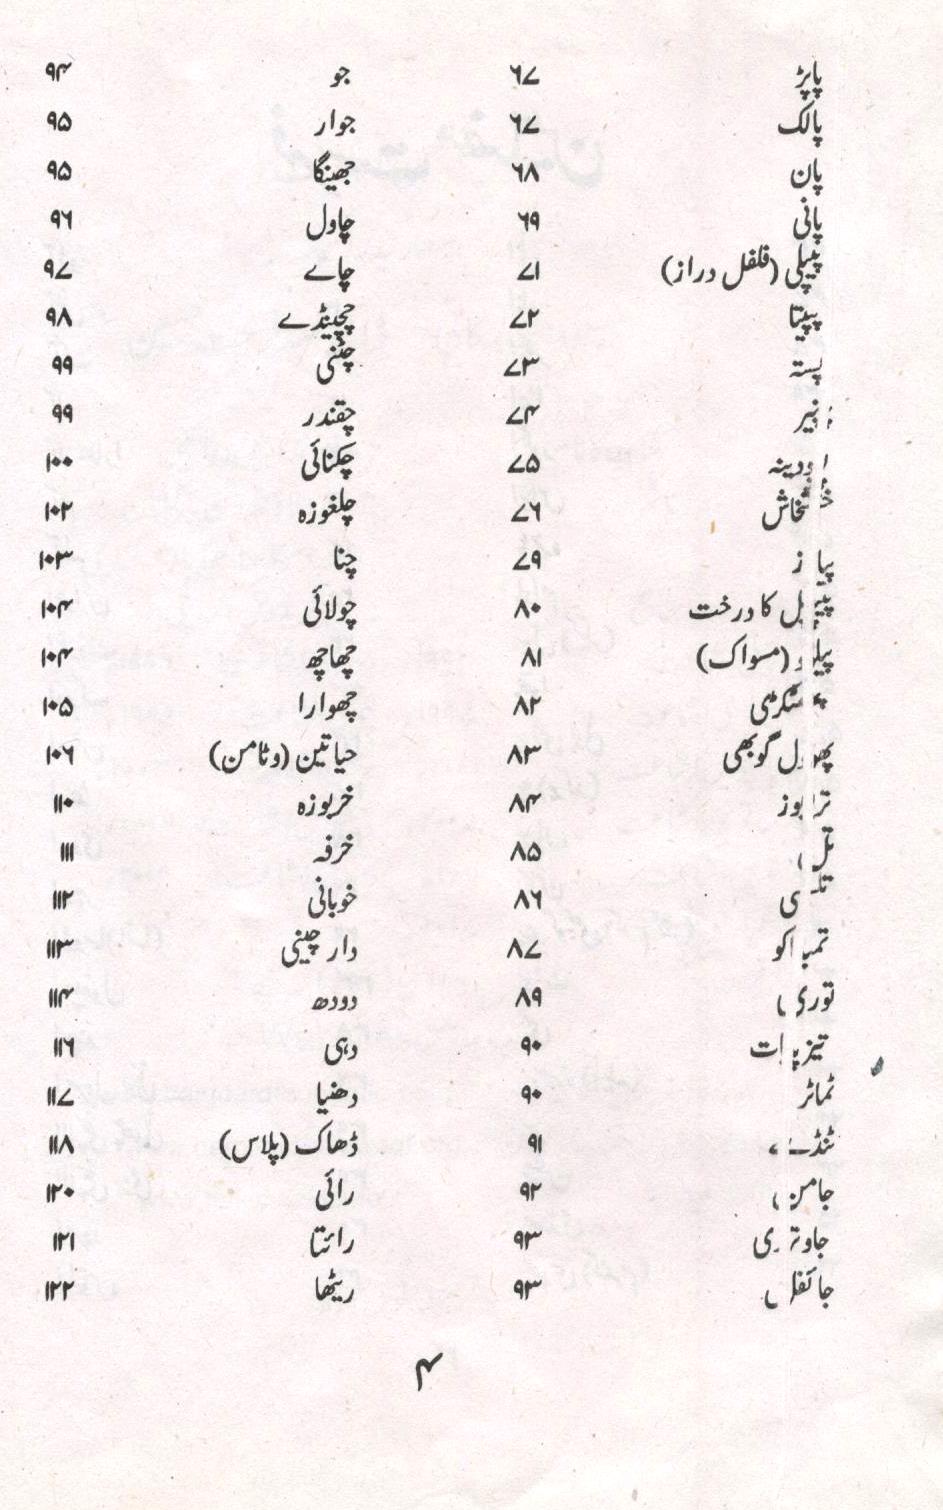 پاپڑ ۶۷
پالک ۶۷
پان ۶۸
پانی ۶۹
پیپلی (فلفل دراز) ۷۱
پپیتا ۷۲
پستہ ۷۳
پنیر ۷۴
پودینہ ۷۵
خشخاش ۷۶
پیاز ۷۹
پیپل کا درخت ۸۰
پیلو (مسواک) ۸۱
پھٹکڑی ۸۲
پھول گوبھی ۸۳
تربوز ۸۴
تل ۸۵
تلسی ۸۶
تمباکو ۸۷
توری ۸۹
تیزپات ۹۰
ٹماٹر ۹۰
ٹنڈے ۹۱
جامن ۹۲
جاوتری ۹۳
جائفل ۹۳
جو ۹۴
جوار ۹۵
جھینگا ۹۵
چاول ۹۶
چاے ۹۷
چچینڈے ۹۸
چٹنی ۹۹
چقندر ۹۹
چکنائی ۱۰۰
چلغوزہ ۱۰۲
چنا ۱۰۳
چولائی ۱۰۴
چھاچھ ۱۰۴
چھوارا ۱۰۵
حیاتین (وٹامن) ۱۰۶
خربوزہ ۱۱۰
خرفہ ۱۱۱
خوبانی ۱۱۲
دار چینی ۱۱۳
دودھ ۱۱۴
دہی ۱۱۶
دھنیا ۱۱۷
ڈھاک (پلاس) ۱۱۸
رائی ۱۲۰
رائتا ۱۲۱
ریٹھا ۱۲۲
۴